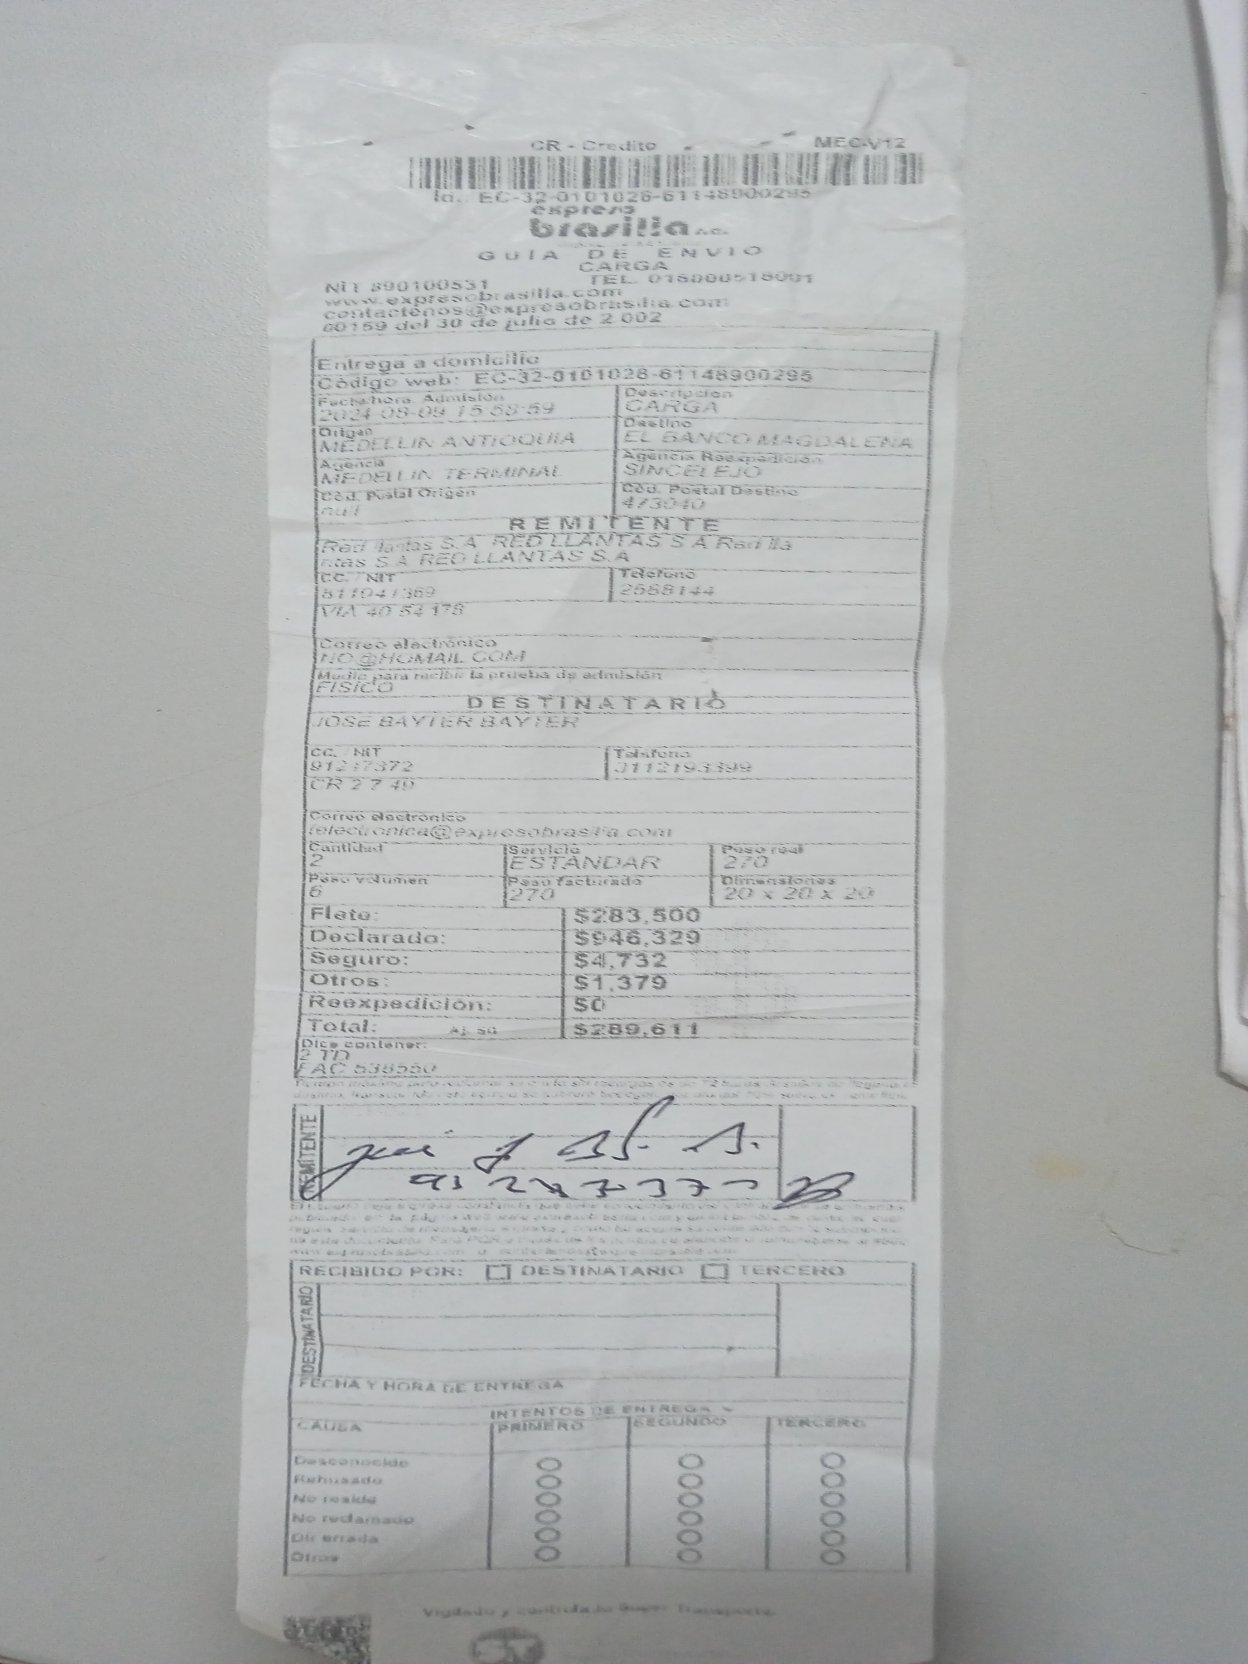 CR - Credito MEC-V12
Id.: EC-32-0101028-61148900295
expreso
brasilia S.A.
GUIA DE ENVIO
CARGA
NIT 890100531 TEL. 018000518001
www.expresobrasilia.com
contactenos@expresobrasilia.com
00159 del 30 de julio de 2 002
Entrega a domicilio
Código web: EC-32-0101028-61148900295
Fecha/hora Admisión Descripcion
2024-08-09 15:58:59 CARGA
Origen Destino
MEDELLIN ANTIOQUIA EL BANCO MAGDALENA
Agencia Agencia Reexpedición
MEDELLIN TERMINAL SINCELEJO
Cod. Postal Origen Cod. Postal Destino
null 473040
REMITENTE
Red llantas S.A RED LLANTAS S A Red lla
ntas S.A RED LLANTAS S.A
CC. / NIT Telefono
811041369 2568144
VIA 40 54 178
Correo electrónico
NO@HOMAIL.COM
Medio para recibir la prueba de admisión
FISICO
DESTINATARIO
JOSE BAYTER BAYTER
CC. / NIT Telefono
91247372 3112193399
CR 2 7 49
Correo electrónico
felectronica@expresobrasilia.com
Cantidad Servicio Peso real
2 ESTANDAR 270
Peso volumen Peso facturado Dimensiones
6 270 20 x 20 x 20
Flete: $283,500
Declarado: $946,329
Seguro: $4,732
Otros: $1,379
Reexpedición: $0
Total: Aj. $0 $289,611
Dice contener:
2 TD
FAC 538550
REMITENTE
RECIBIDO POR: DESTINATARIO TERCERO
DESTINATARIO
FECHA Y HORA DE ENTREGA
INTENTOS DE ENTREGA
CAUSA PRIMERO SEGUNDO TERCERO
Desconocido
Rehusado
No reside
No reclamado
Dir errada
Otros
Vigilado y controlado Super Transporte